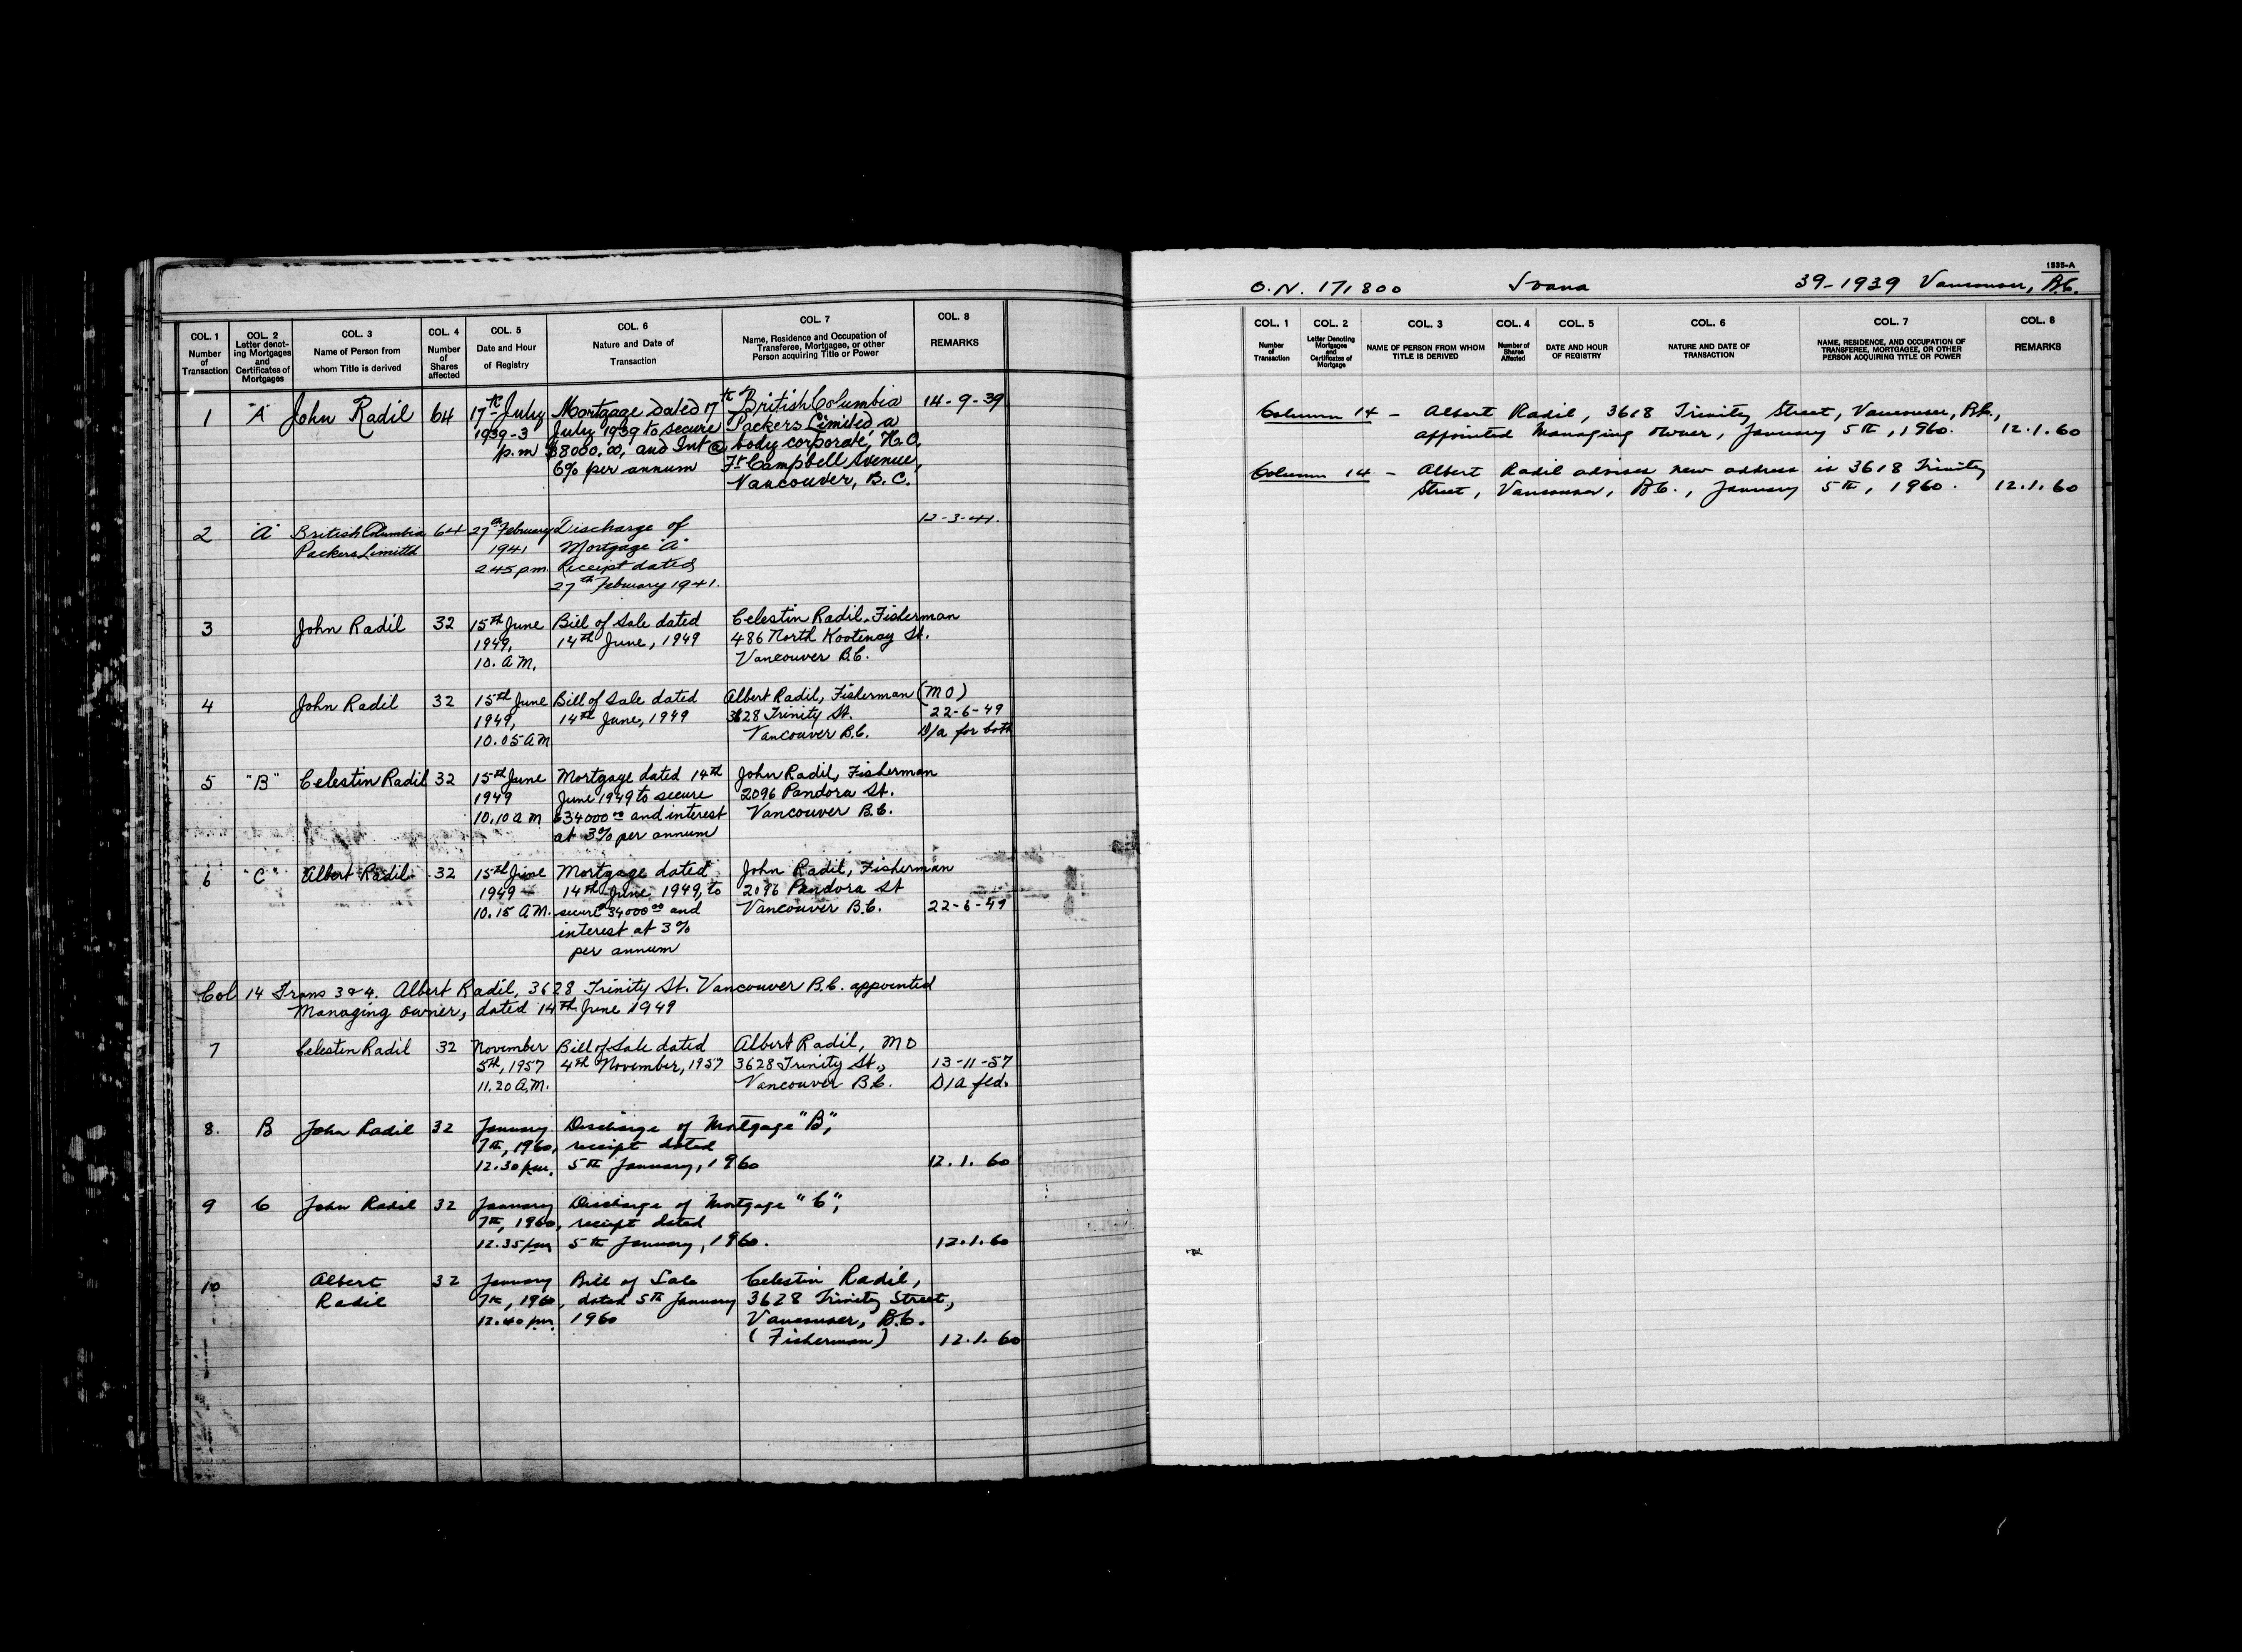 COL. 1 COL. 2 COL. 3 COL. 4 COL. 5 COL. 6 COL. 7 COL. 8
Number of Transaction
Letter denoting Mortgages and Certificates of Mortgages
Name of Person from whom Title is derived
Number of Shares affected
Date and Hour of Registry
Nature and Date of Transaction
Name, Residence and Occupation of Transferee, Mortgagee, or other Person acquiring Title or Power
REMARKS
1 "A" John Radil 64 17th July Mortgage dated 17th British Columbia 14-9-39
1939-3 July 1939 to secure Packers Limited a
p.m $8000.00, and Int @ body corporate, H.O.
6% per annum Ft Campbell Avenue,
Vancouver, B.C.
2 "A" British Columbia 64 27th February Discharge of 12-3-41.
Packers Limited 1941 Mortgage "A"
2.45 p.m. Receipt dated
27th February 1941.
3 John Radil 32 15th June Bill of Sale dated Celestin Radil, Fisherman
1949, 14th June, 1949 486 North Kootenay St.
10. A.M. Vancouver B.C.
4 John Radil 32 15th June Bill of Sale dated Albert Radil, Fisherman (M O)
1949, 14th June, 1949 3628 Trinity St. 22-6-49
10.05 A M Vancouver B.C. D/a for both
5 "B" Celestin Radil 32 15th June Mortgage dated 14th John Radil, Fisherman
1949 June 1949 to secure 2096 Pandora St.
10.10 a m $34000.00 and interest Vancouver B.C.
at 3% per annum
6 "C" Albert Radil 32 15th June Mortgage dated John Radil, Fisherman
1949 14th June 1949, to 2096 Pandora St
10.15 A.M. secure $34000.00 and Vancouver B.C. 22-6-49
interest at 3%
per annum
Col 14 Trans 3 & 4. Albert Radil, 3628 Trinity St. Vancouver B.C. appointed
Managing Owner, dated 14th June 1949
7 Celestin Radil 32 November Bill of Sale dated Albert Radil, M O
5th, 1957 4th November, 1957 3628 Trinity St., 13-11-57
11.20 A.M. Vancouver B.C. D/a fld.
8. B John Radil 32 January Discharge of Mortgage "B",
7th, 1960, receipt dated
12.30 pm. 5th January, 1960 12.1.60
9 C John Radil 32 January Discharge of Mortgage "C",
7th, 1960, receipt dated
12.35 pm 5th January, 1960. 12.1.60
10 Albert 32 January Bill of Sale Celestin Radil,
Radil 7th, 1960, dated 5th January 3628 Trinity Street,
12.40 pm. 1960 Vancouver, B.C.
(Fisherman) 12.1.60
1535-A
O.N. 171800 Ivana 39-1939 Vancouver, B.C.
COL. 1 COL. 2 COL. 3 COL. 4 COL. 5 COL. 6 COL. 7 COL. 8
Number of Transaction
Letter Denoting Mortgages and Certificates of Mortgage
NAME OF PERSON FROM WHOM TITLE IS DERIVED
Number of Shares Affected
DATE AND HOUR OF REGISTRY
NATURE AND DATE OF TRANSACTION
NAME, RESIDENCE, AND OCCUPATION OF TRANSFEREE, MORTGAGEE, OR OTHER PERSON ACQUIRING TITLE OR POWER
REMARKS
Column 14 - Albert Radil, 3618 Trinity Street, Vancouver, B.C.,
appointed Managing Owner, January 5th, 1960. 12.1.60
Column 14 - Albert Radil advises new address is 3618 Trinity
Street, Vancouver, B.C., January 5th, 1960. 12.1.60